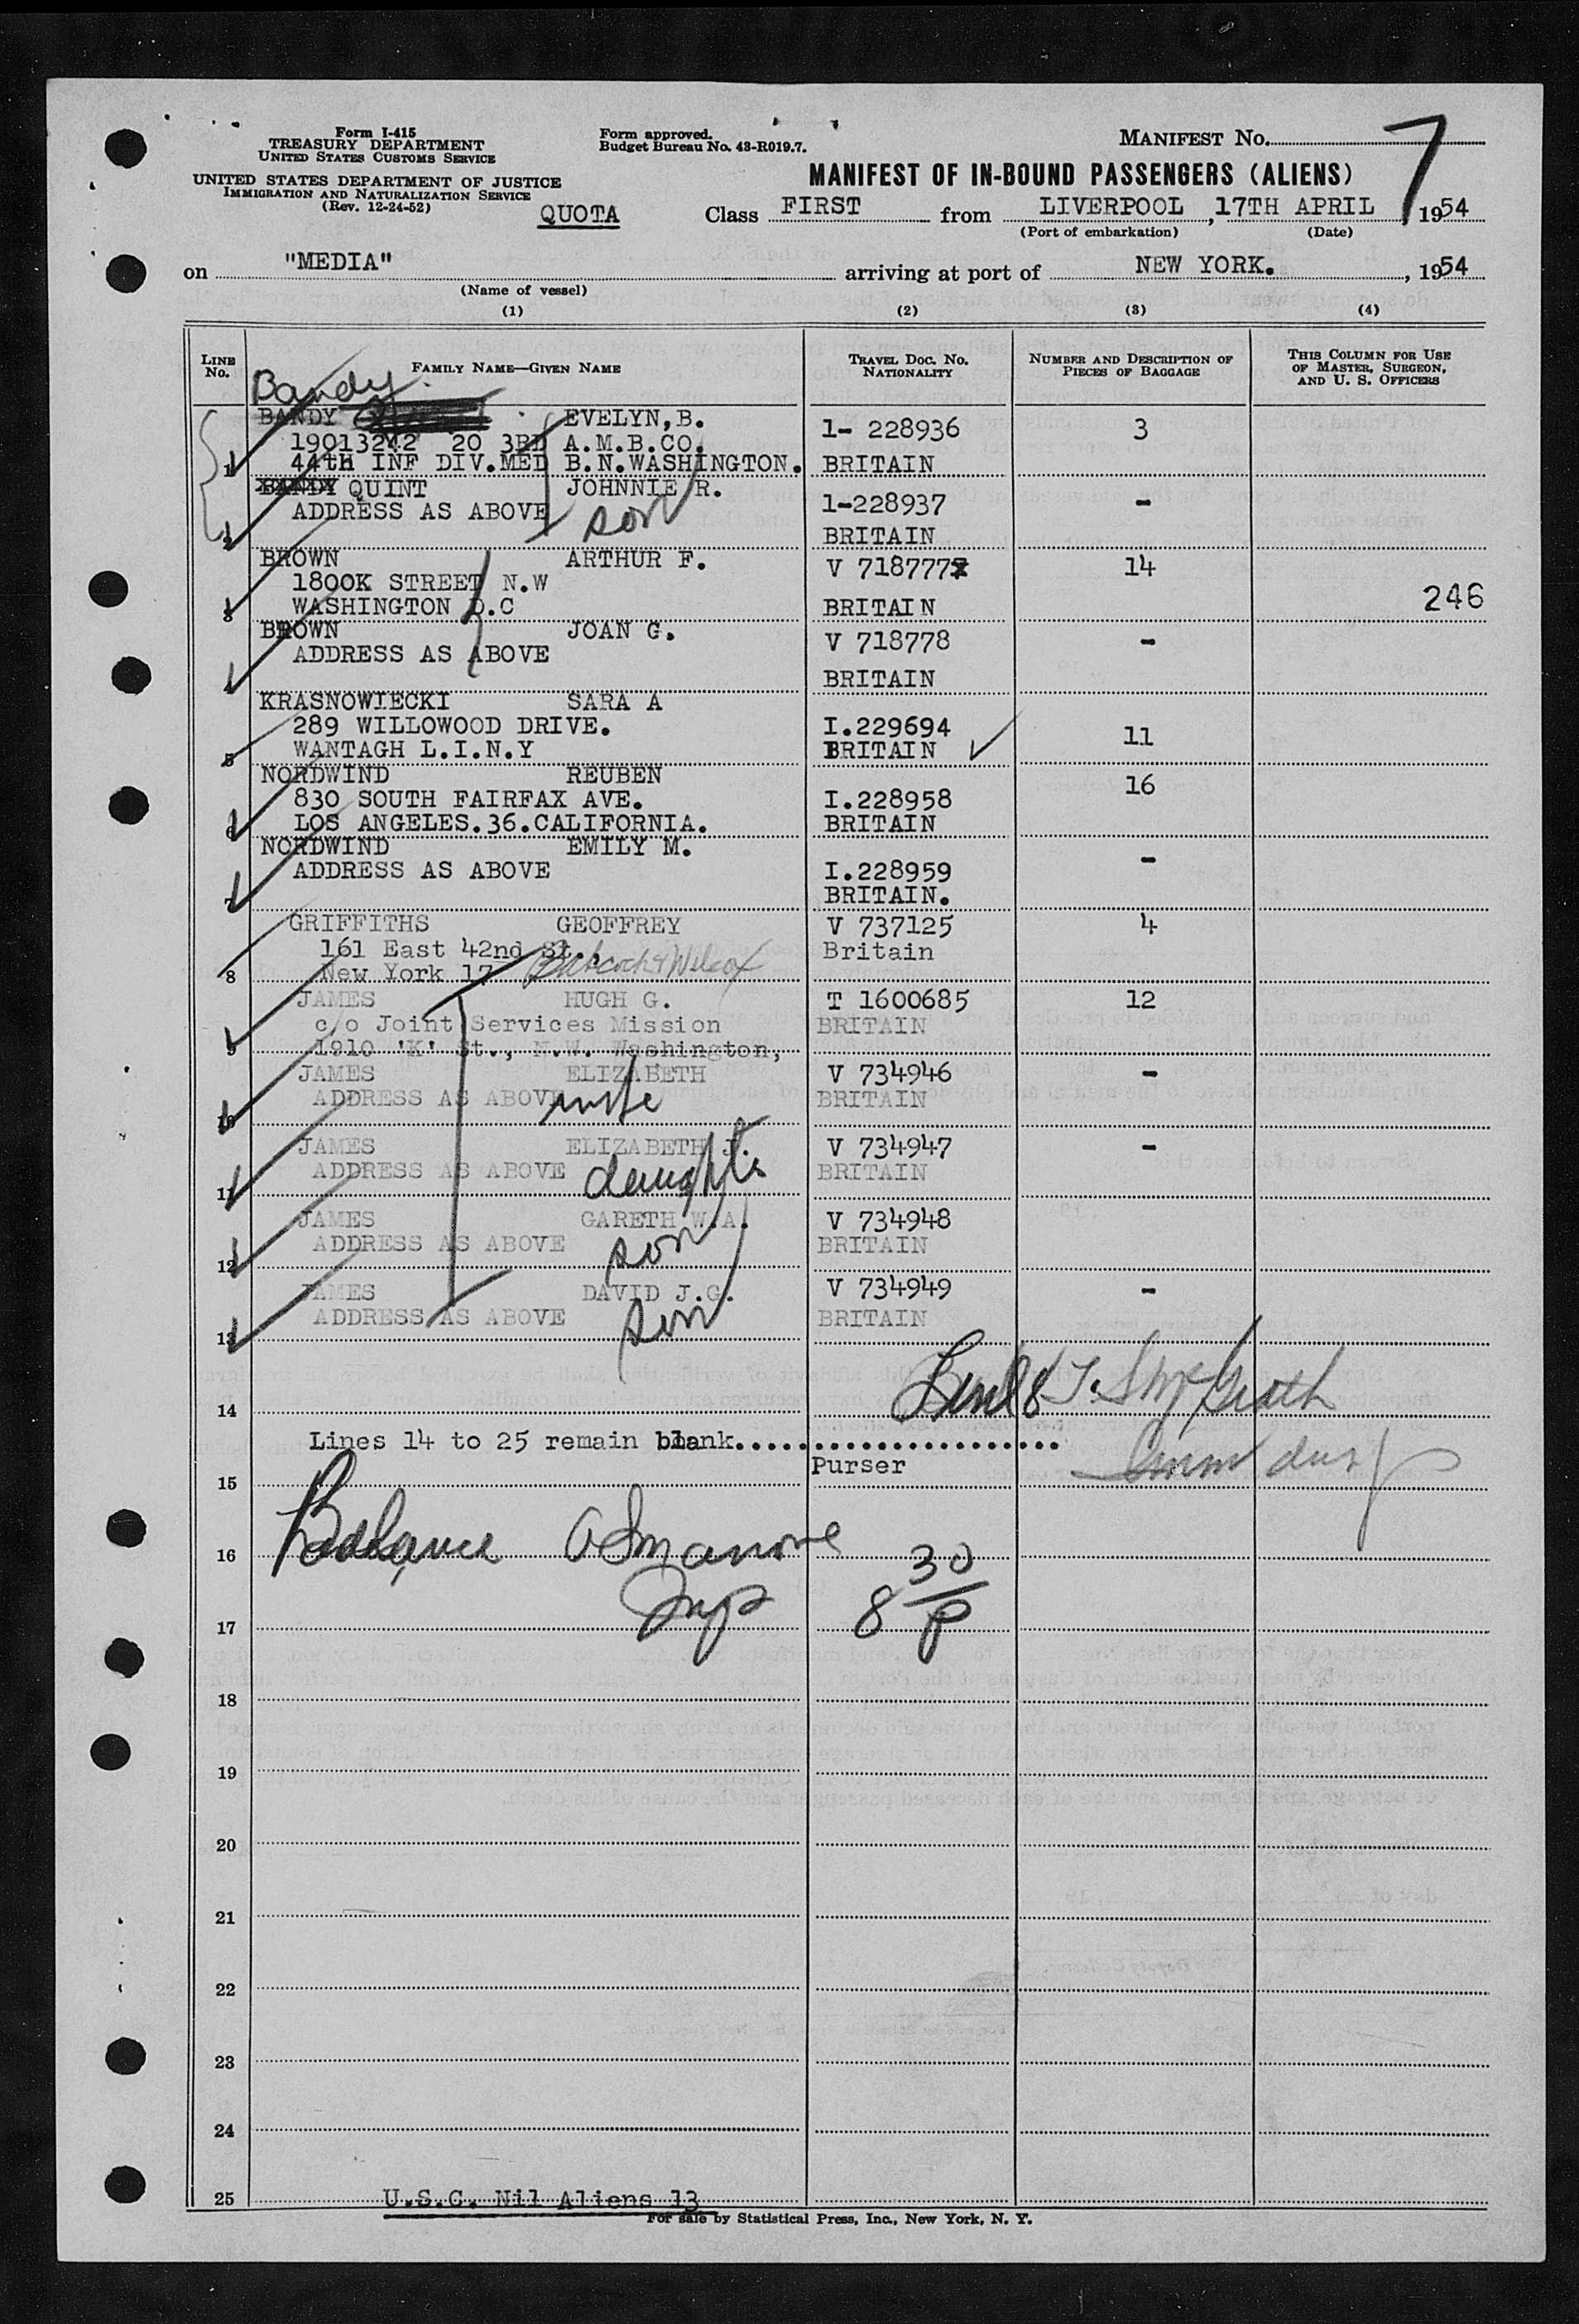 Form I-415
TREASURY DEPARTMENT
UNITED STATES CUSTOMS SERVICE
Form approved.
Budget Bureau No. 43-R019.7.
MANIFEST No. 7
UNITED STATES DEPARTMENT OF JUSTICE
IMMIGRATION AND NATURALIZATION SERVICE
(Rev. 12-24-52)
MANIFEST OF IN-BOUND PASSENGERS (ALIENS)
QUOTA Class FIRST from LIVERPOOL, 17TH APRIL, 1954
(Port of embarkation) (Date)
on "MEDIA" arriving at port of NEW YORK., 1954
(Name of vessel)
(1) (2) (3) (4)
LINE No.
FAMILY NAME—GIVEN NAME
TRAVEL DOC. NO. NATIONALITY
NUMBER AND DESCRIPTION OF PIECES OF BAGGAGE
THIS COLUMN FOR USE OF MASTER, SURGEON, AND U. S. OFFICERS
Bandy
BANDY EVELYN,B. 1- 228936 3
19013242 20 3RD A.M.B.CO.
1 44tH INF DIV.MED B.N.WASHINGTON. BRITAIN
BANDY QUINT JOHNNIE R. 1-228937 -
ADDRESS AS ABOVE son
2 BRITAIN
BROWN ARTHUR F. V 718777 14
1800K STREET N.W
3 WASHINGTON D.C BRITAIN 246
BROWN JOAN G. V 718778 -
ADDRESS AS ABOVE
BRITAIN
KRASNOWIECKI SARA A
289 WILLOWOOD DRIVE. I.229694 11
5 WANTAGH L.I.N.Y BRITAIN
NORDWIND REUBEN 16
830 SOUTH FAIRFAX AVE. I.228958
6 LOS ANGELES.36.CALIFORNIA. BRITAIN
NORDWIND EMILY M. -
ADDRESS AS ABOVE I.228959
7 BRITAIN.
GRIFFITHS GEOFFREY V 737125 4
161 East 42nd St., Britain
8 New York 17 Babcock & Wilcox
JAMES HUGH G. T 1600685 12
c/o Joint Services Mission BRITAIN
9 1910 'K' St., N.W. Washington,
JAMES ELIZABETH V 734946 -
ADDRESS AS ABOVE wife BRITAIN
10
JAMES ELIZABETH J. V 734947 -
ADDRESS AS ABOVE daughter BRITAIN
11
JAMES GARETH W.A. V 734948
ADDRESS AS ABOVE son BRITAIN
12
JAMES DAVID J.G. V 734949 -
ADDRESS AS ABOVE son BRITAIN
13
14
Lines 14 to 25 remain blank..........................
Purser
15
16 Balance
8 30/P
17
18
19
20
21
22
23
24
25 U.S.C. Nil Aliens 13
For sale by Statistical Press, Inc., New York, N. Y.